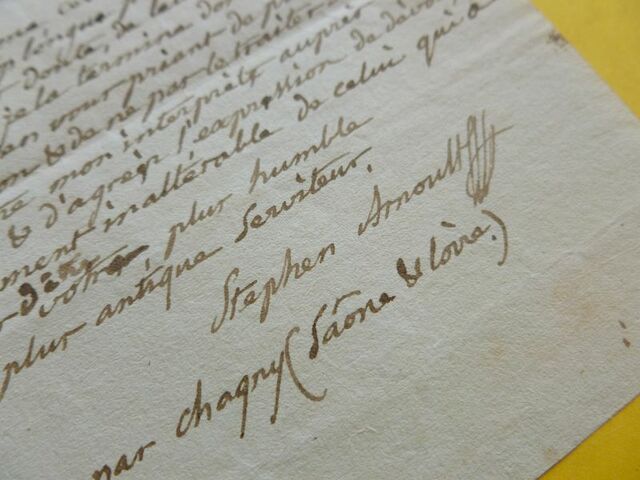 longue
doute, de
je la termine
en vous priant de
on & de ne pas le traiter
mon interprète auprès
& d'agréer l'expression de
ment inaltérable de celui qui a
d'être votre, plus humble
plus antique serviteur.
Stephen Arnoult
par chagny (Saône & Loire.)